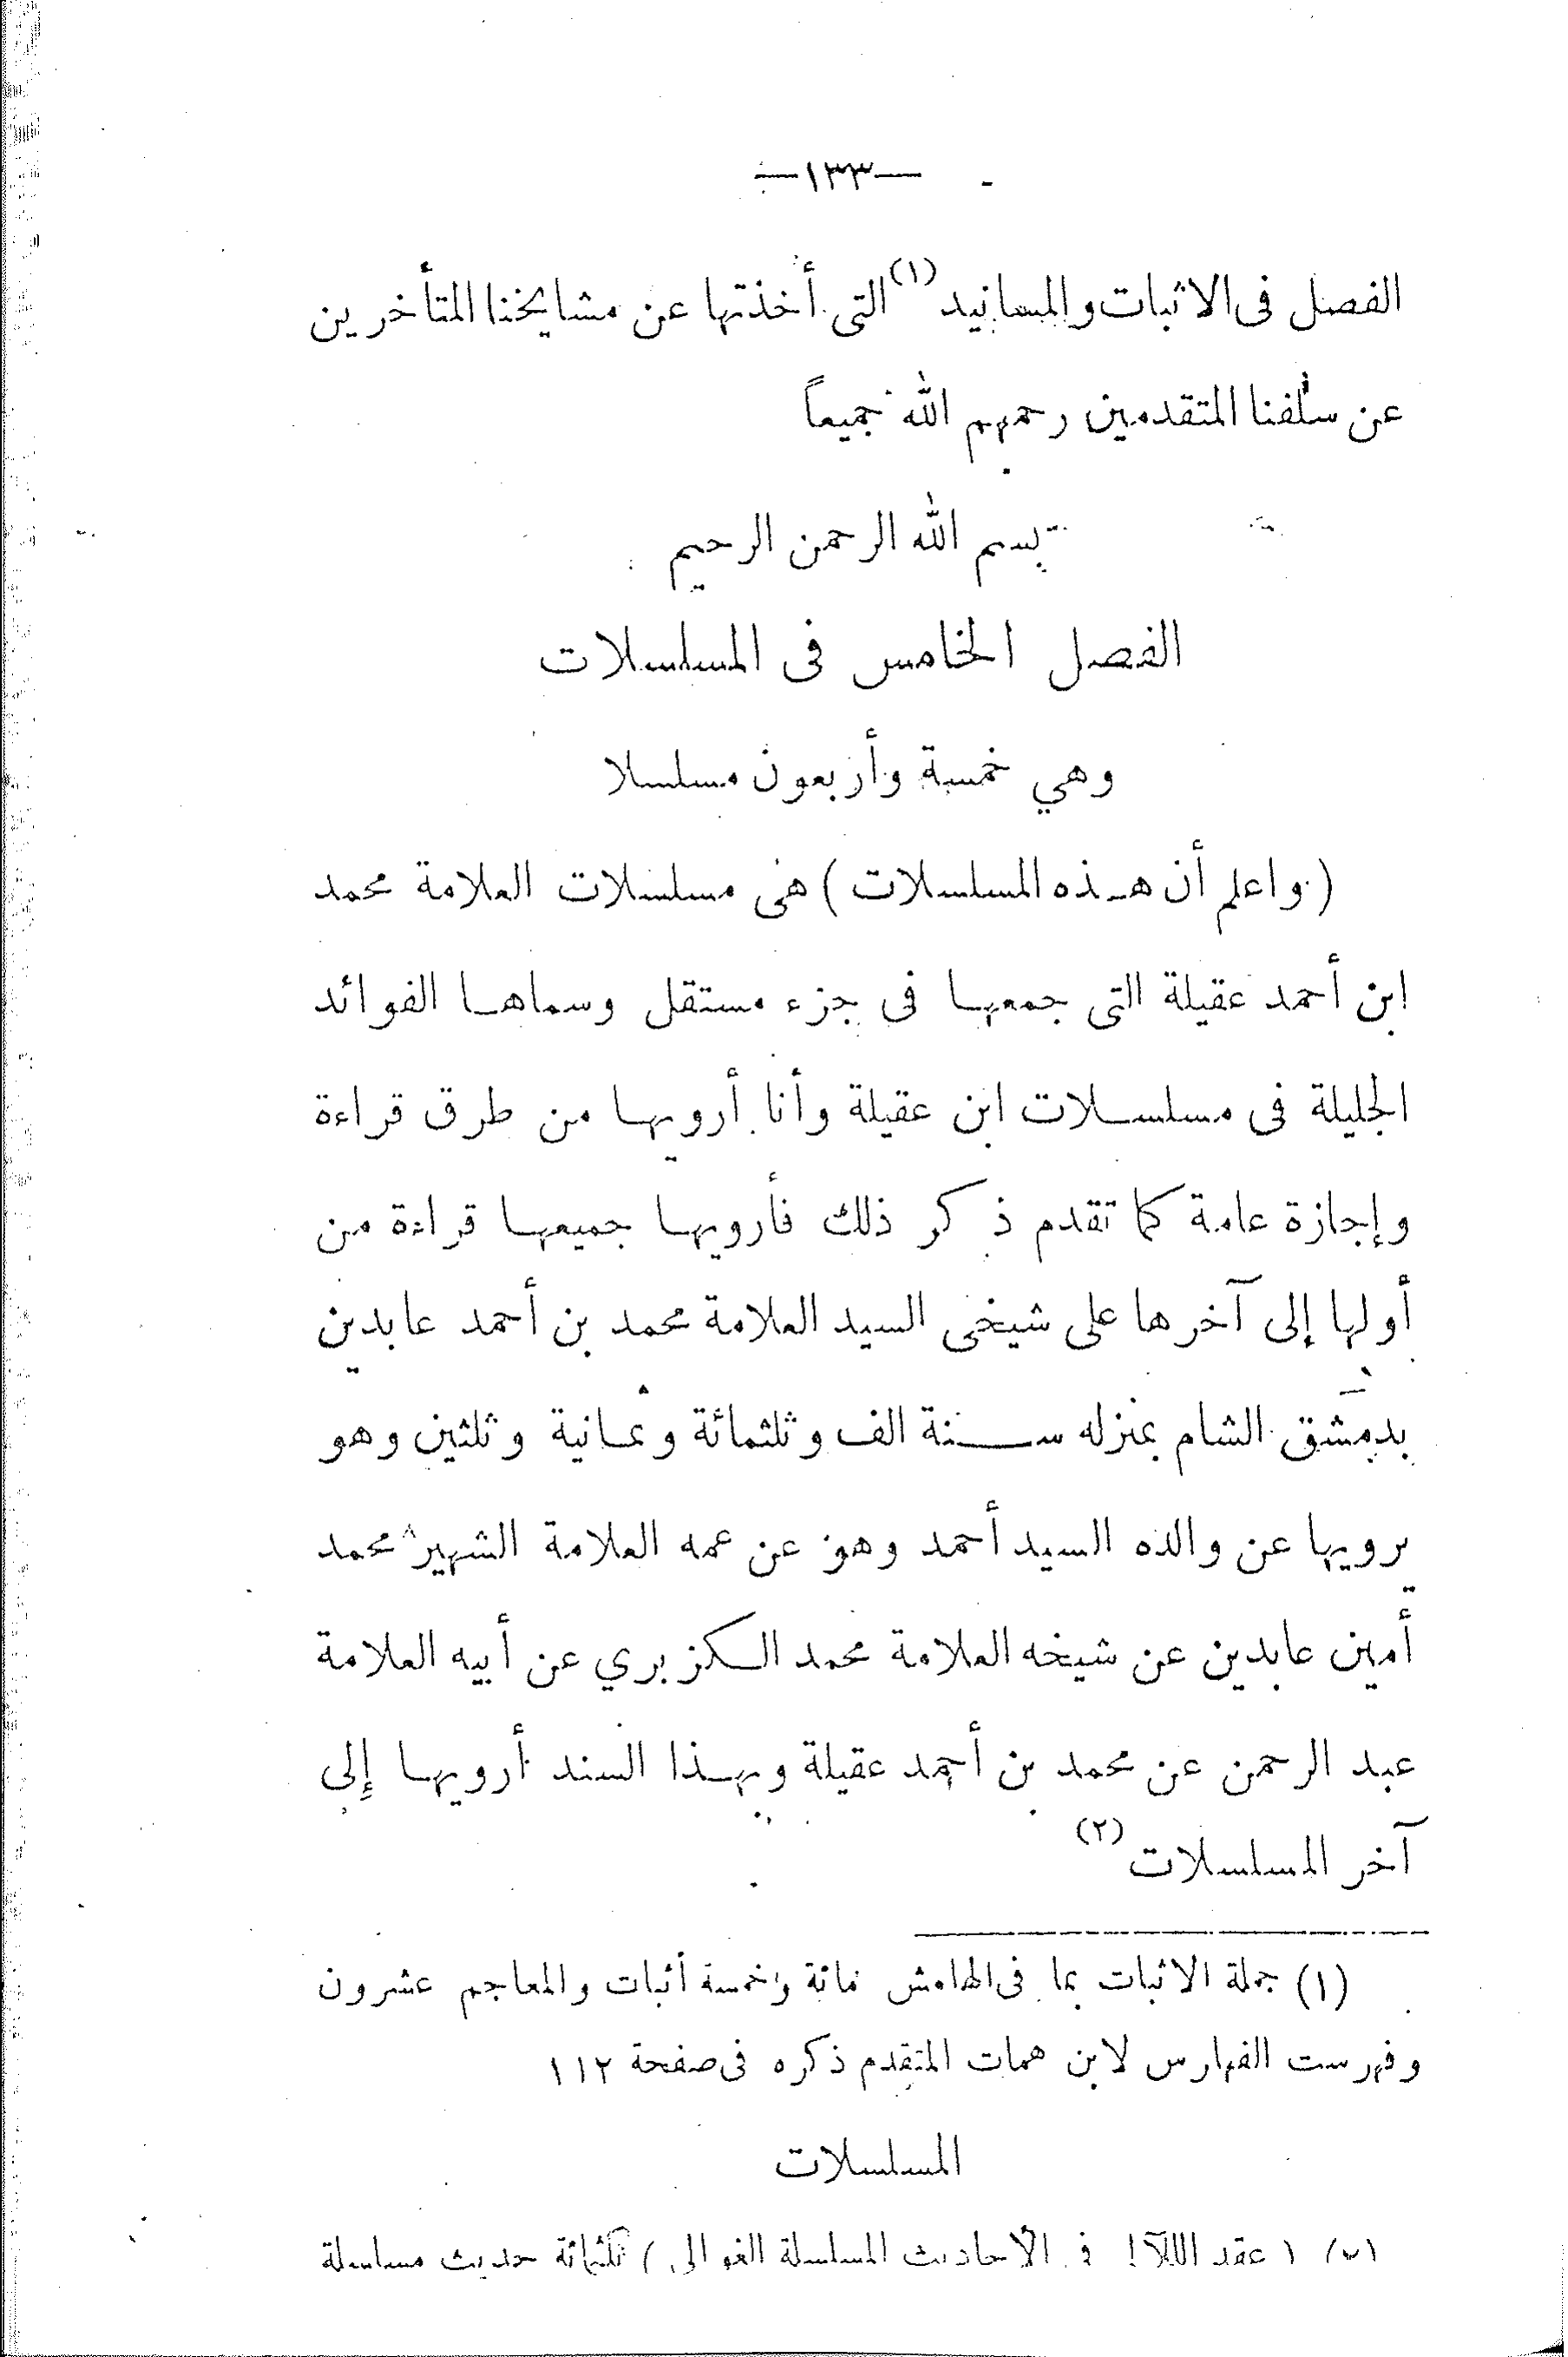 —١٣٣—
الفصل فى الاثبات والمسانيد (١) التى أخذتها عن مشايخنا المتأخرين
عن سلفنا المتقدمين رحمهم الله جميعاً
بسم الله الرحمن الرحيم
الفصل الخامس فى المسلسلات
وهي خمسة وأربعون مسلسلا
(واعلم أن هـذه المسلسلات) هى مسلسلات العلامة محمد
ابن أحمد عقيلة التى جمعها فى جزء مستقل وسماهـا الفوائد
الجليلة فى مسلسـلات ابن عقيلة وأنا أرويهـا من طرق قراءة
وإجازة عامة كما تقدم ذكر ذلك فأرويهـا جميعهـا قراءة من
أولها إلى آخرها على شيخى السيد العلامة محمد بن أحمد عابدين
بدمشق الشام بمنزله سـنة الف وثلثمائة وثمـانية وثلثين وهو
يرويها عن والده السيد أحمد وهو عن عمه العلامة الشهير محمد
أمين عابدين عن شيخه العلامة محمد الـكزبري عن أبيه العلامة
عبد الرحمن عن محمد بن أحمد عقيلة وبهـذا السند أرويهـا إلى
آخر المسلسلات (٢)
(١) جملة الاثبات بما فى الهامش مائة وخمسة أثبات والمعاجم عشرون
وفهرست الفهارس لابن همات المتقدم ذكره فى صفحة ١١٢
المسلسلات
(٢) (عقد اللآلى فى الأحاديث المسلسلة الغوالى) ثلثمائة حديث مسلسلة